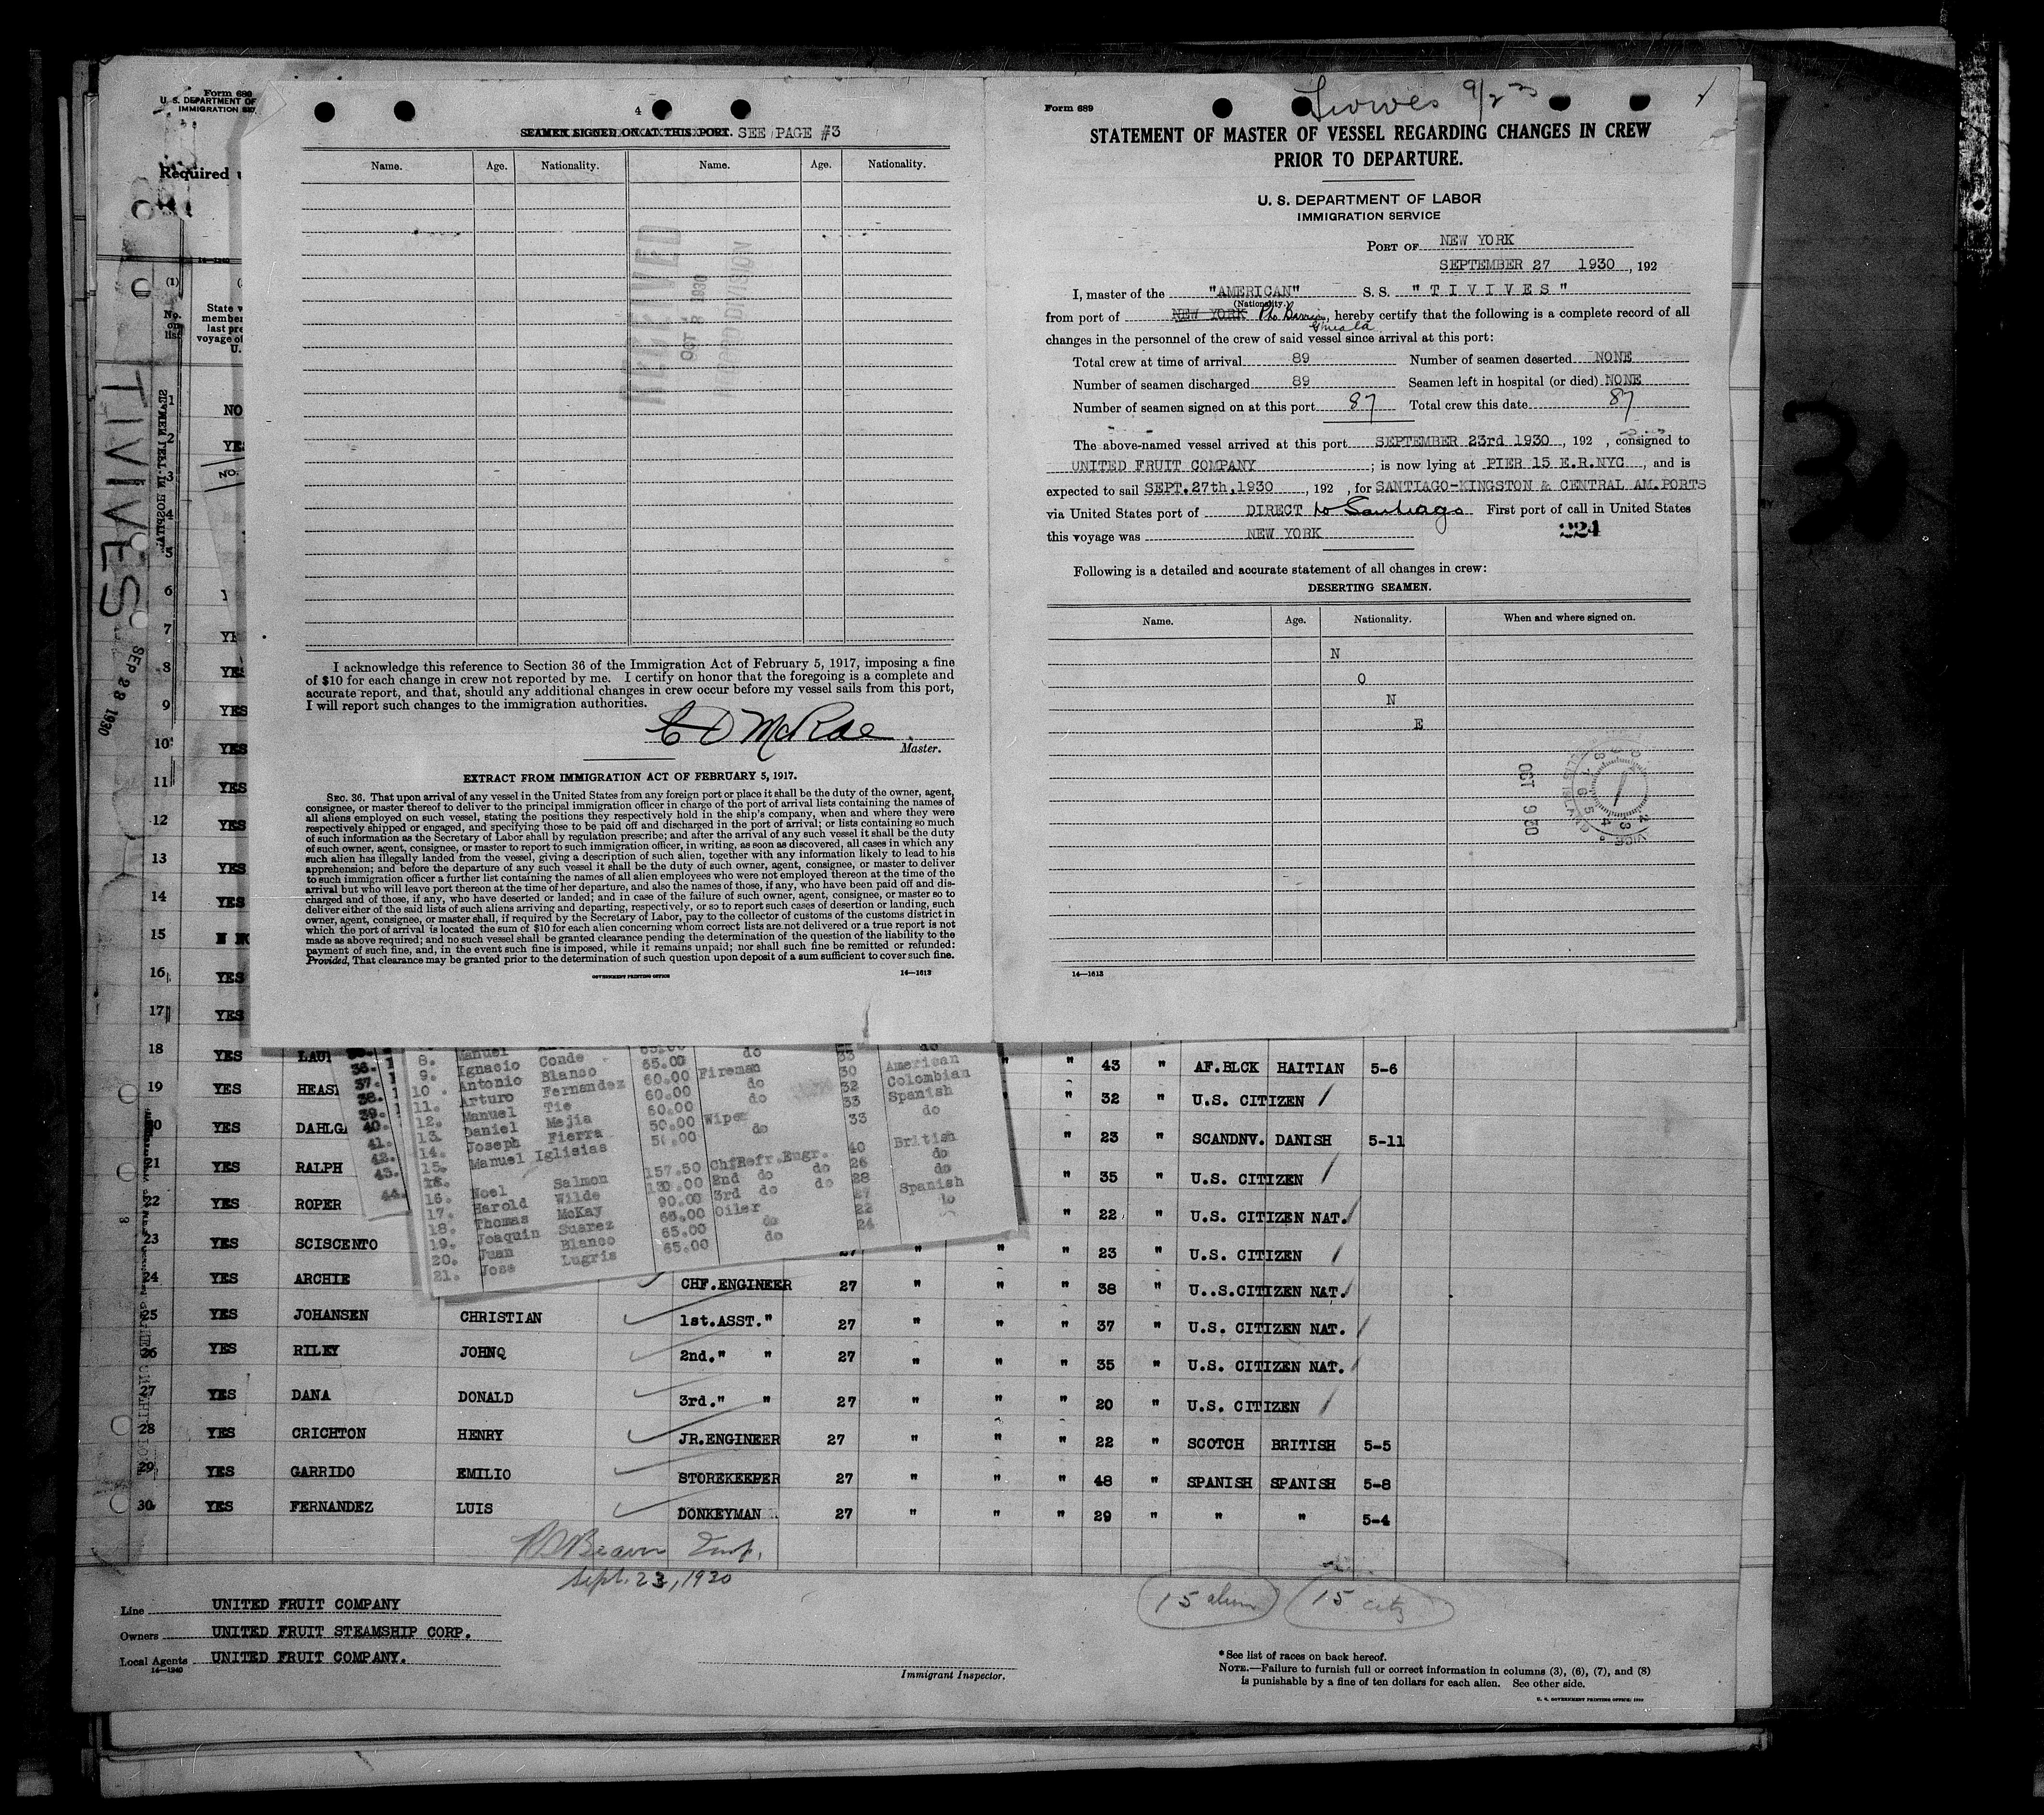 Form 689
U. S. DEPARTMENT OF
IMMIGRATION SER
Required u
14-1240
(1)
No. on list
State w
member
last pre
voyage of
U.
TIVIVES
SEP 28 1930
4
SEAMEN SIGNED ON AT THIS PORT. SEE PAGE #3
Name. Age. Nationality. Name. Age. Nationality.
RECEIVED
OCT 8 1930
RECORD DIVISION
I acknowledge this reference to Section 36 of the Immigration Act of February 5, 1917, imposing a fine
of $10 for each change in crew not reported by me. I certify on honor that the foregoing is a complete and
accurate report, and that, should any additional changes in crew occur before my vessel sails from this port,
I will report such changes to the immigration authorities.
C D McRae
Master.
EXTRACT FROM IMMIGRATION ACT OF FEBRUARY 5, 1917.
SEC. 36. That upon arrival of any vessel in the United States from any foreign port or place it shall be the duty of the owner, agent,
consignee, or master thereof to deliver to the principal immigration officer in charge of the port of arrival lists containing the names of
all aliens employed on such vessel, stating the positions they respectively hold in the ship's company, when and where they were
respectively shipped or engaged, and specifying those to be paid off and discharged in the port of arrival; or lists containing so much
of such information as the Secretary of Labor shall by regulation prescribe; and after the arrival of any such vessel it shall be the duty
of such owner, agent, consignee, or master to report to such immigration officer, in writing, as soon as discovered, all cases in which any
such alien has illegally landed from the vessel, giving a description of such alien, together with any information likely to lead to his
apprehension; and before the departure of any such vessel it shall be the duty of such owner, agent, consignee, or master to deliver
to such immigration officer a further list containing the names of all alien employees who were not employed thereon at the time of the
arrival but who will leave port thereon at the time of her departure, and also the names of those, if any, who have been paid off and dis-
charged and of those, if any, who have deserted or landed; and in case of the failure of such owner, agent, consignee, or master so to
deliver either of the said lists of such aliens arriving and departing, respectively, or so to report such cases of desertion or landing, such
owner, agent, consignee, or master shall, if required by the Secretary of Labor, pay to the collector of customs of the customs district in
which the port of arrival is located the sum of $10 for each alien concerning whom correct lists are not delivered or a true report is not
made as above required; and no such vessel shall be granted clearance pending the determination of the question of the liability to the
payment of such fine, and, in the event such fine is imposed, while it remains unpaid; nor shall such fine be remitted or refunded:
Provided, That clearance may be granted prior to the determination of such question upon deposit of a sum sufficient to cover such fine.
GOVERNMENT PRINTING OFFICE 14-1613
Form 689
9/23
STATEMENT OF MASTER OF VESSEL REGARDING CHANGES IN CREW
PRIOR TO DEPARTURE.
U. S. DEPARTMENT OF LABOR
IMMIGRATION SERVICE
PORT OF NEW YORK
SEPTEMBER 27 1930, 192
I, master of the "AMERICAN" S. S. "T I V I V E S"
(Nationality.)
from port of NEW YORK Pto Barrios, hereby certify that the following is a complete record of all
changes in the personnel of the crew of said vessel since arrival at this port:
Total crew at time of arrival 89 Number of seamen deserted NONE
Number of seamen discharged 89 Seamen left in hospital (or died) NONE
Number of seamen signed on at this port 87 Total crew this date 87
The above-named vessel arrived at this port SEPTEMBER 23rd 1930, 192 , consigned to
UNITED FRUIT COMPANY ; is now lying at PIER 15 E.R.NYC, and is
expected to sail SEPT.27th,1930, 192 , for SANTIAGO-KINGSTON & CENTRAL AM.PORTS
via United States port of DIRECT to Santiago First port of call in United States
this voyage was NEW YORK 224
Following is a detailed and accurate statement of all changes in crew:
DESERTING SEAMEN.
Name. Age. Nationality. When and where signed on.
N
O
N
E
OCT 9 30
14-1613
8. Manuel do 33 do
9. Ignacio Conde 65.00 30 American
10. Antonio Blanco 60.00 Fireman 32 Colombian
11. Arturo Fernandez 60.00 do 33 Spanish
12. Manuel Tie 60.00 do 33 do
13. Daniel Mejia 50.00 Wiper
14. Joseph Fierra 50.00 do
15. Manuel Iglisias
16. Noel Salmon 157.50 Chf Refr.Engr. 40 British
17. Harold Wilde 130.00 2nd do do 26 do
18. Thomas McKay 90.00 3rd do do 28 do
19. Joaquin Suarez 65.00 Oiler 27 Spanish
20. Juan Blanco 65.00 do 22 do
21. Jose Lugris 65.00 do 24
18 YES LAU " 43 " AF.BLCK HAITIAN 5-6
19 YES HEAS " 32 " U.S. CITIZEN
20 YES DAHLG " 23 " SCANDNV. DANISH 5-11
21 YES RALPH " 35 " U.S. CITIZEN
22 YES ROPER " 22 " U.S. CITIZEN NAT.
23 YES SCISCENTO 27 " " " 23 " U.S. CITIZEN
24 YES ARCHIE CHF.ENGINEER 27 " " " 38 " U..S.CITIZEN NAT.
25 YES JOHANSEN CHRISTIAN 1st.ASST." 27 " " " 37 " U.S. CITIZEN NAT.
26 YES RILEY JOHNQ 2nd." " 27 " " " 35 " U.S. CITIZEN NAT.
27 YES DANA DONALD 3rd." " 27 " " " 20 " U.S. CITIZEN
28 YES CRICHTON HENRY JR.ENGINEER 27 " " " 22 " SCOTCH BRITISH 5-5
29 YES GARRIDO EMILIO STOREKEEPER 27 " " " 48 " SPANISH SPANISH 5-8
30 YES FERNANDEZ LUIS DONKEYMAN 27 " " " 29 " " " 5-4
Sept. 23, 1930
15 alien 15 citz
Line UNITED FRUIT COMPANY
Owners UNITED FRUIT STEAMSHIP CORP.
Local Agents UNITED FRUIT COMPANY.
14-1240
Immigrant Inspector.
*See list of races on back hereof.
NOTE.—Failure to furnish full or correct information in columns (3), (6), (7), and (8)
is punishable by a fine of ten dollars for each alien. See other side.